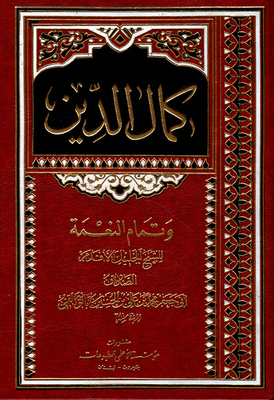 كمال الدين
وتمام النعمة
للشيخ الجليل الأقدم
الصدوق
أبي جعفر محمد بن علي بن الحسين بن بابويه القمي
منشورات
مؤسسة الأعلمي للمطبوعات
بيروت - لبنان